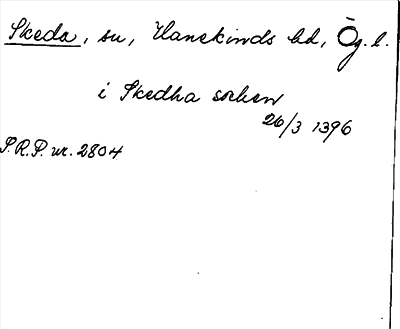 Skeda, sn, Hanekinds hd, Ög. l.
i Skedha sochen
26/3 1396
S.R.P. nr. 2804